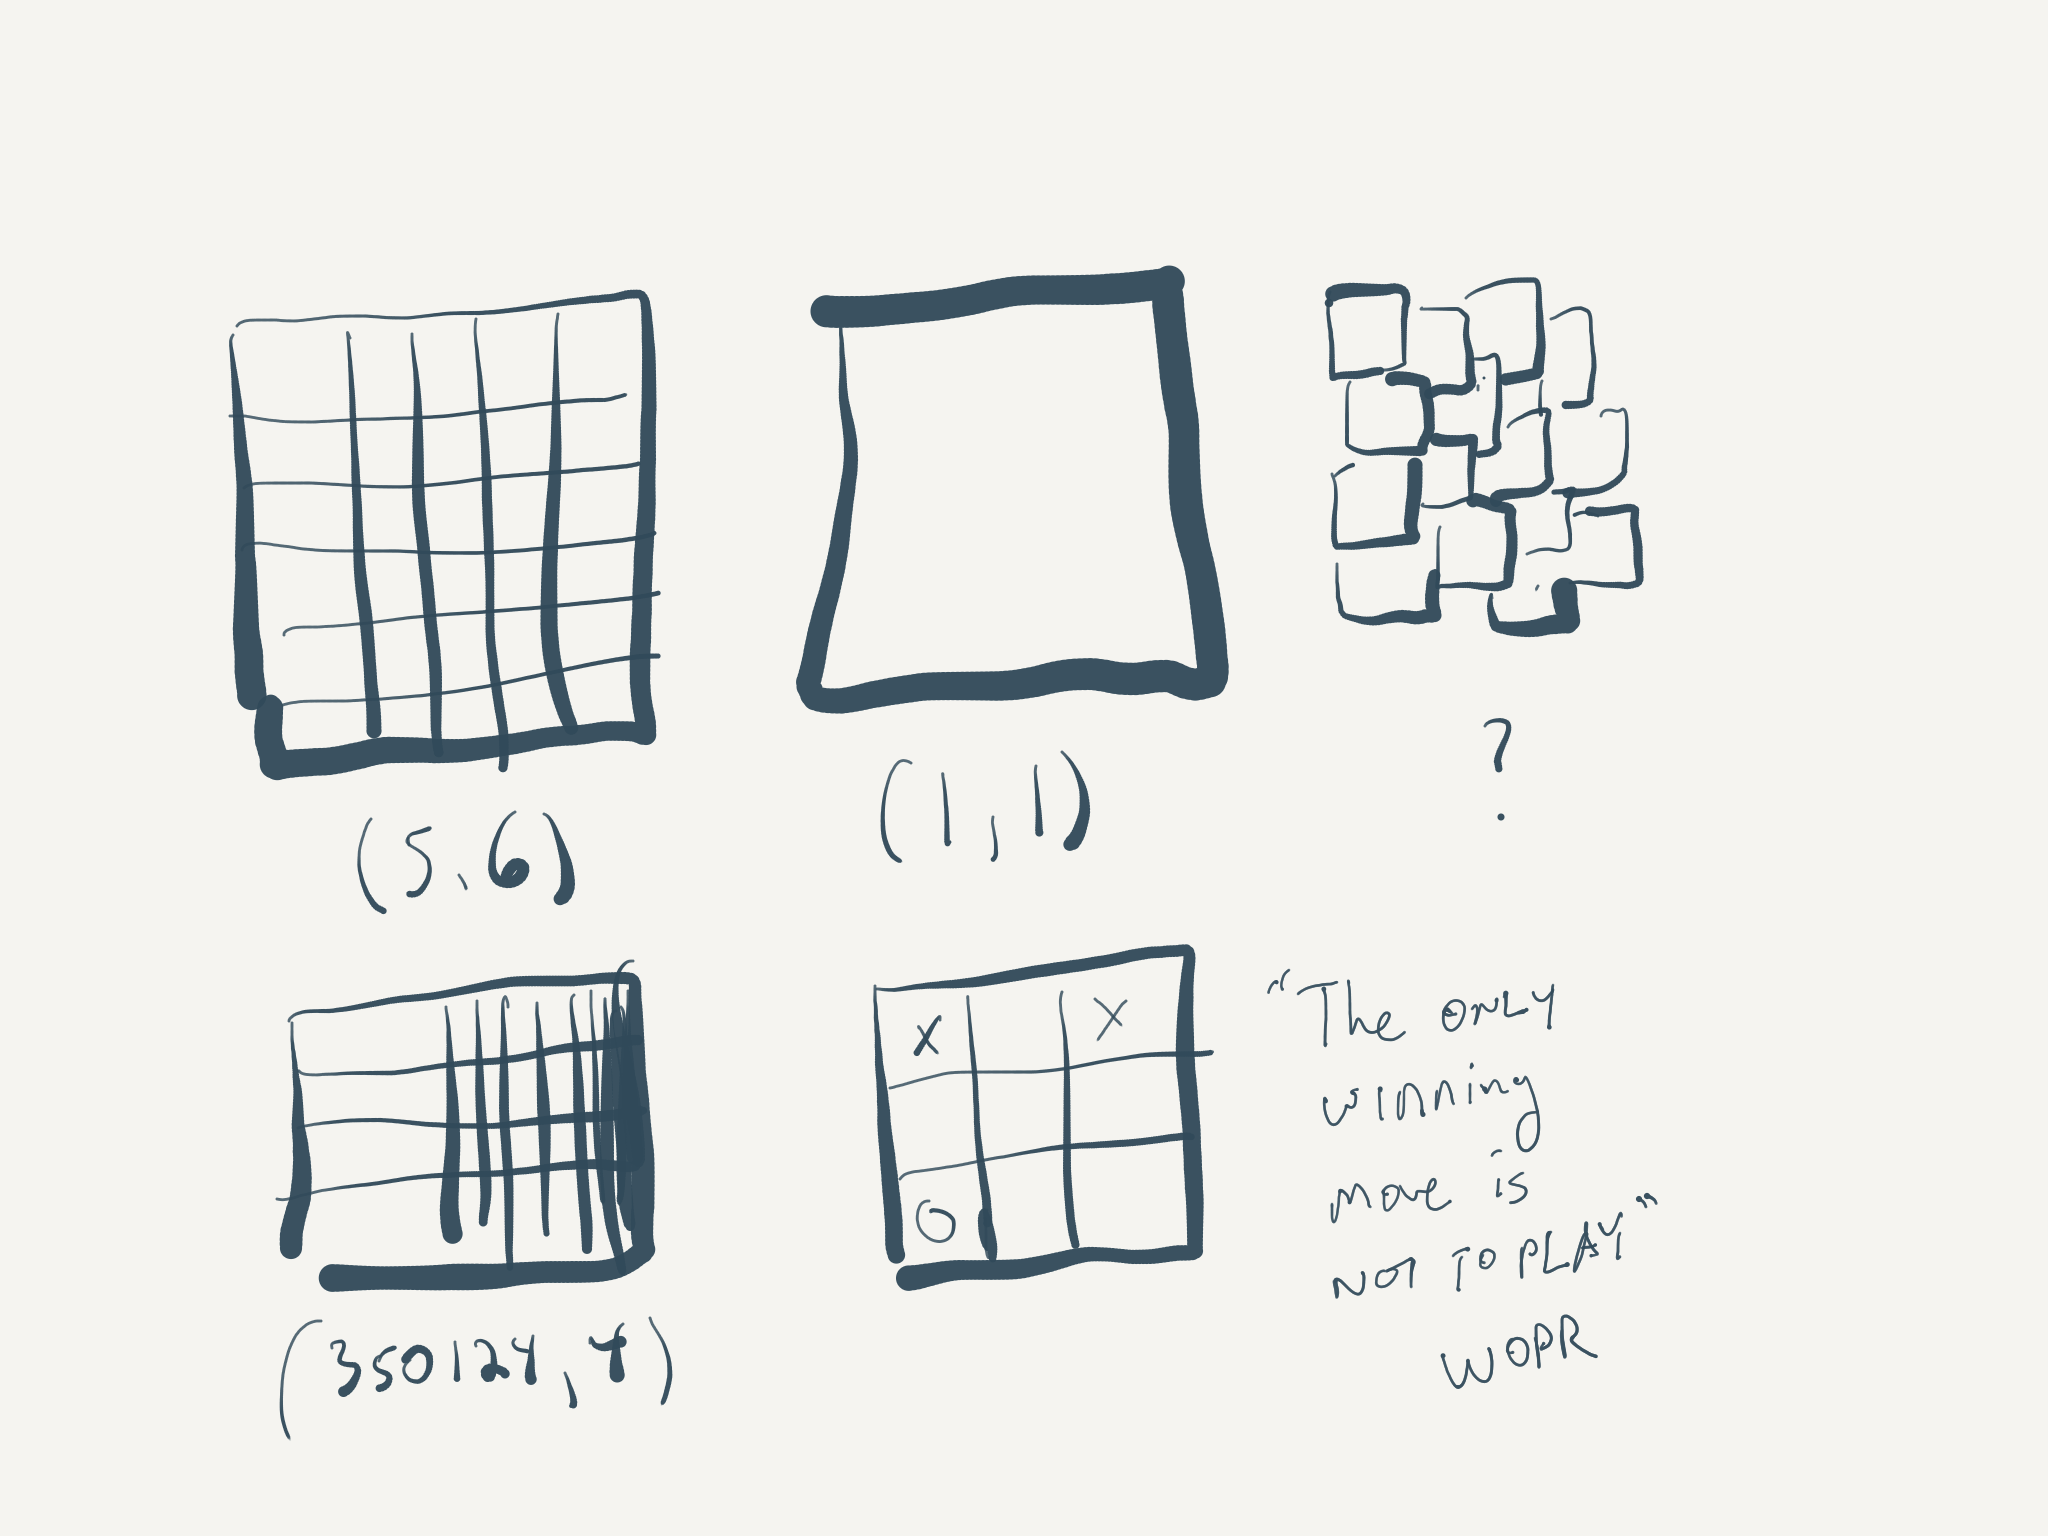 (5,6)
(1,1)
?
(350124,4)
X
X
O
"The ONLY
winning
move is
NOT TO PLAY"
WOPR